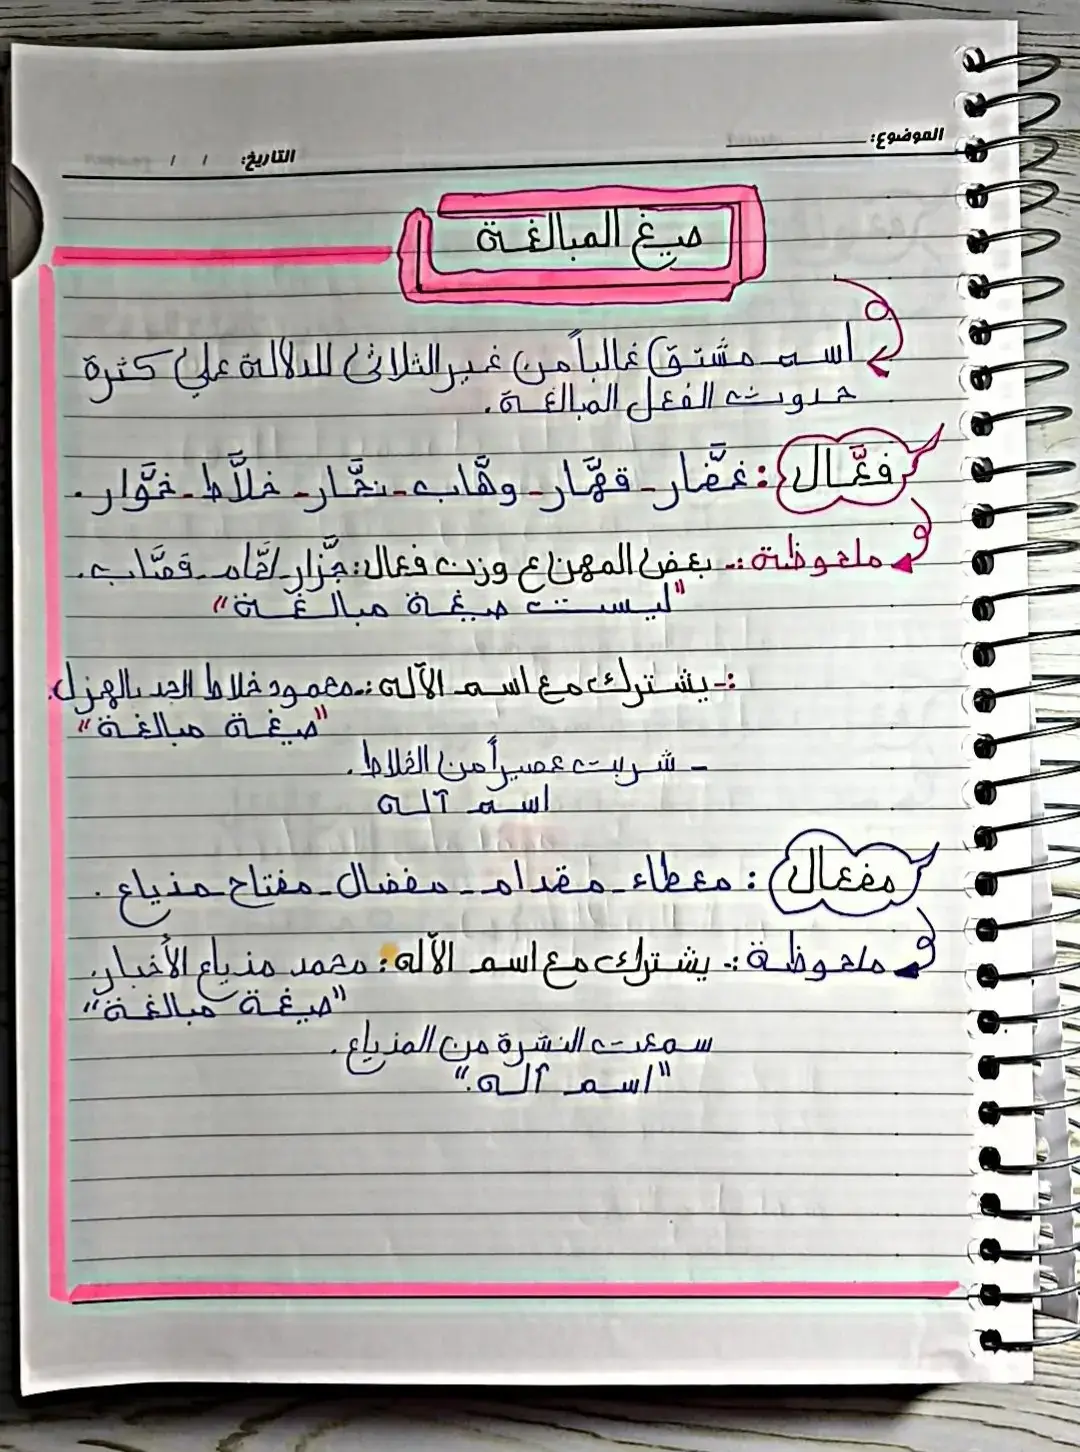 الموضوع:
التاريخ: / /
صيغ المبالغة
اسم مشتق غالباً من غير الثلاثي للدلالة على كثرة
حدوث الفعل المبالغة.
فعَّال: غفَّار - قهَّار - وهَّاب - نحَّار - خلَّاط - خوَّار.
ملحوظة:- بعض المهن ع وزن فعال: جزَّار - لحَّام - قصَّاب.
"ليست صيغة مبالغة"
:- يشترك مع اسم الآله:- محمود خلاط الجد بالهزل.
"صيغة مبالغة"
- شربت عصيراً من الخلاط.
اسم آله
مفعال: معطاء - مقدام - مفضال - مفتاح - مذياع.
ملحوظة:- يشترك مع اسم الآله: محمد مذياع الأخبار.
"صيغة مبالغة"
سمعت النشرة من المذياع.
"اسم آله."